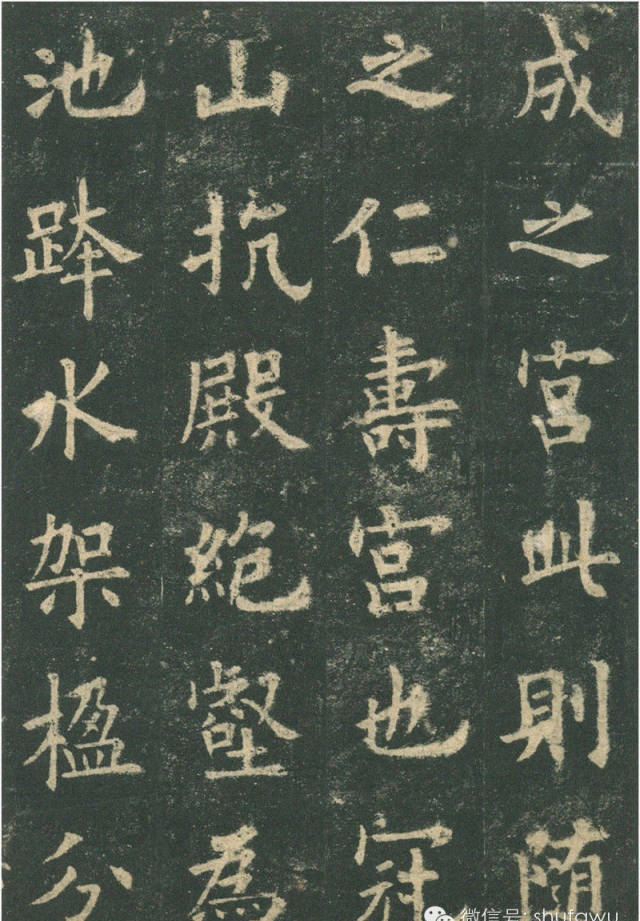 成之宫此則随
之仁壽宫也冠
山抗殿絶壑為
池跨水架楹分
微信号: shufawu